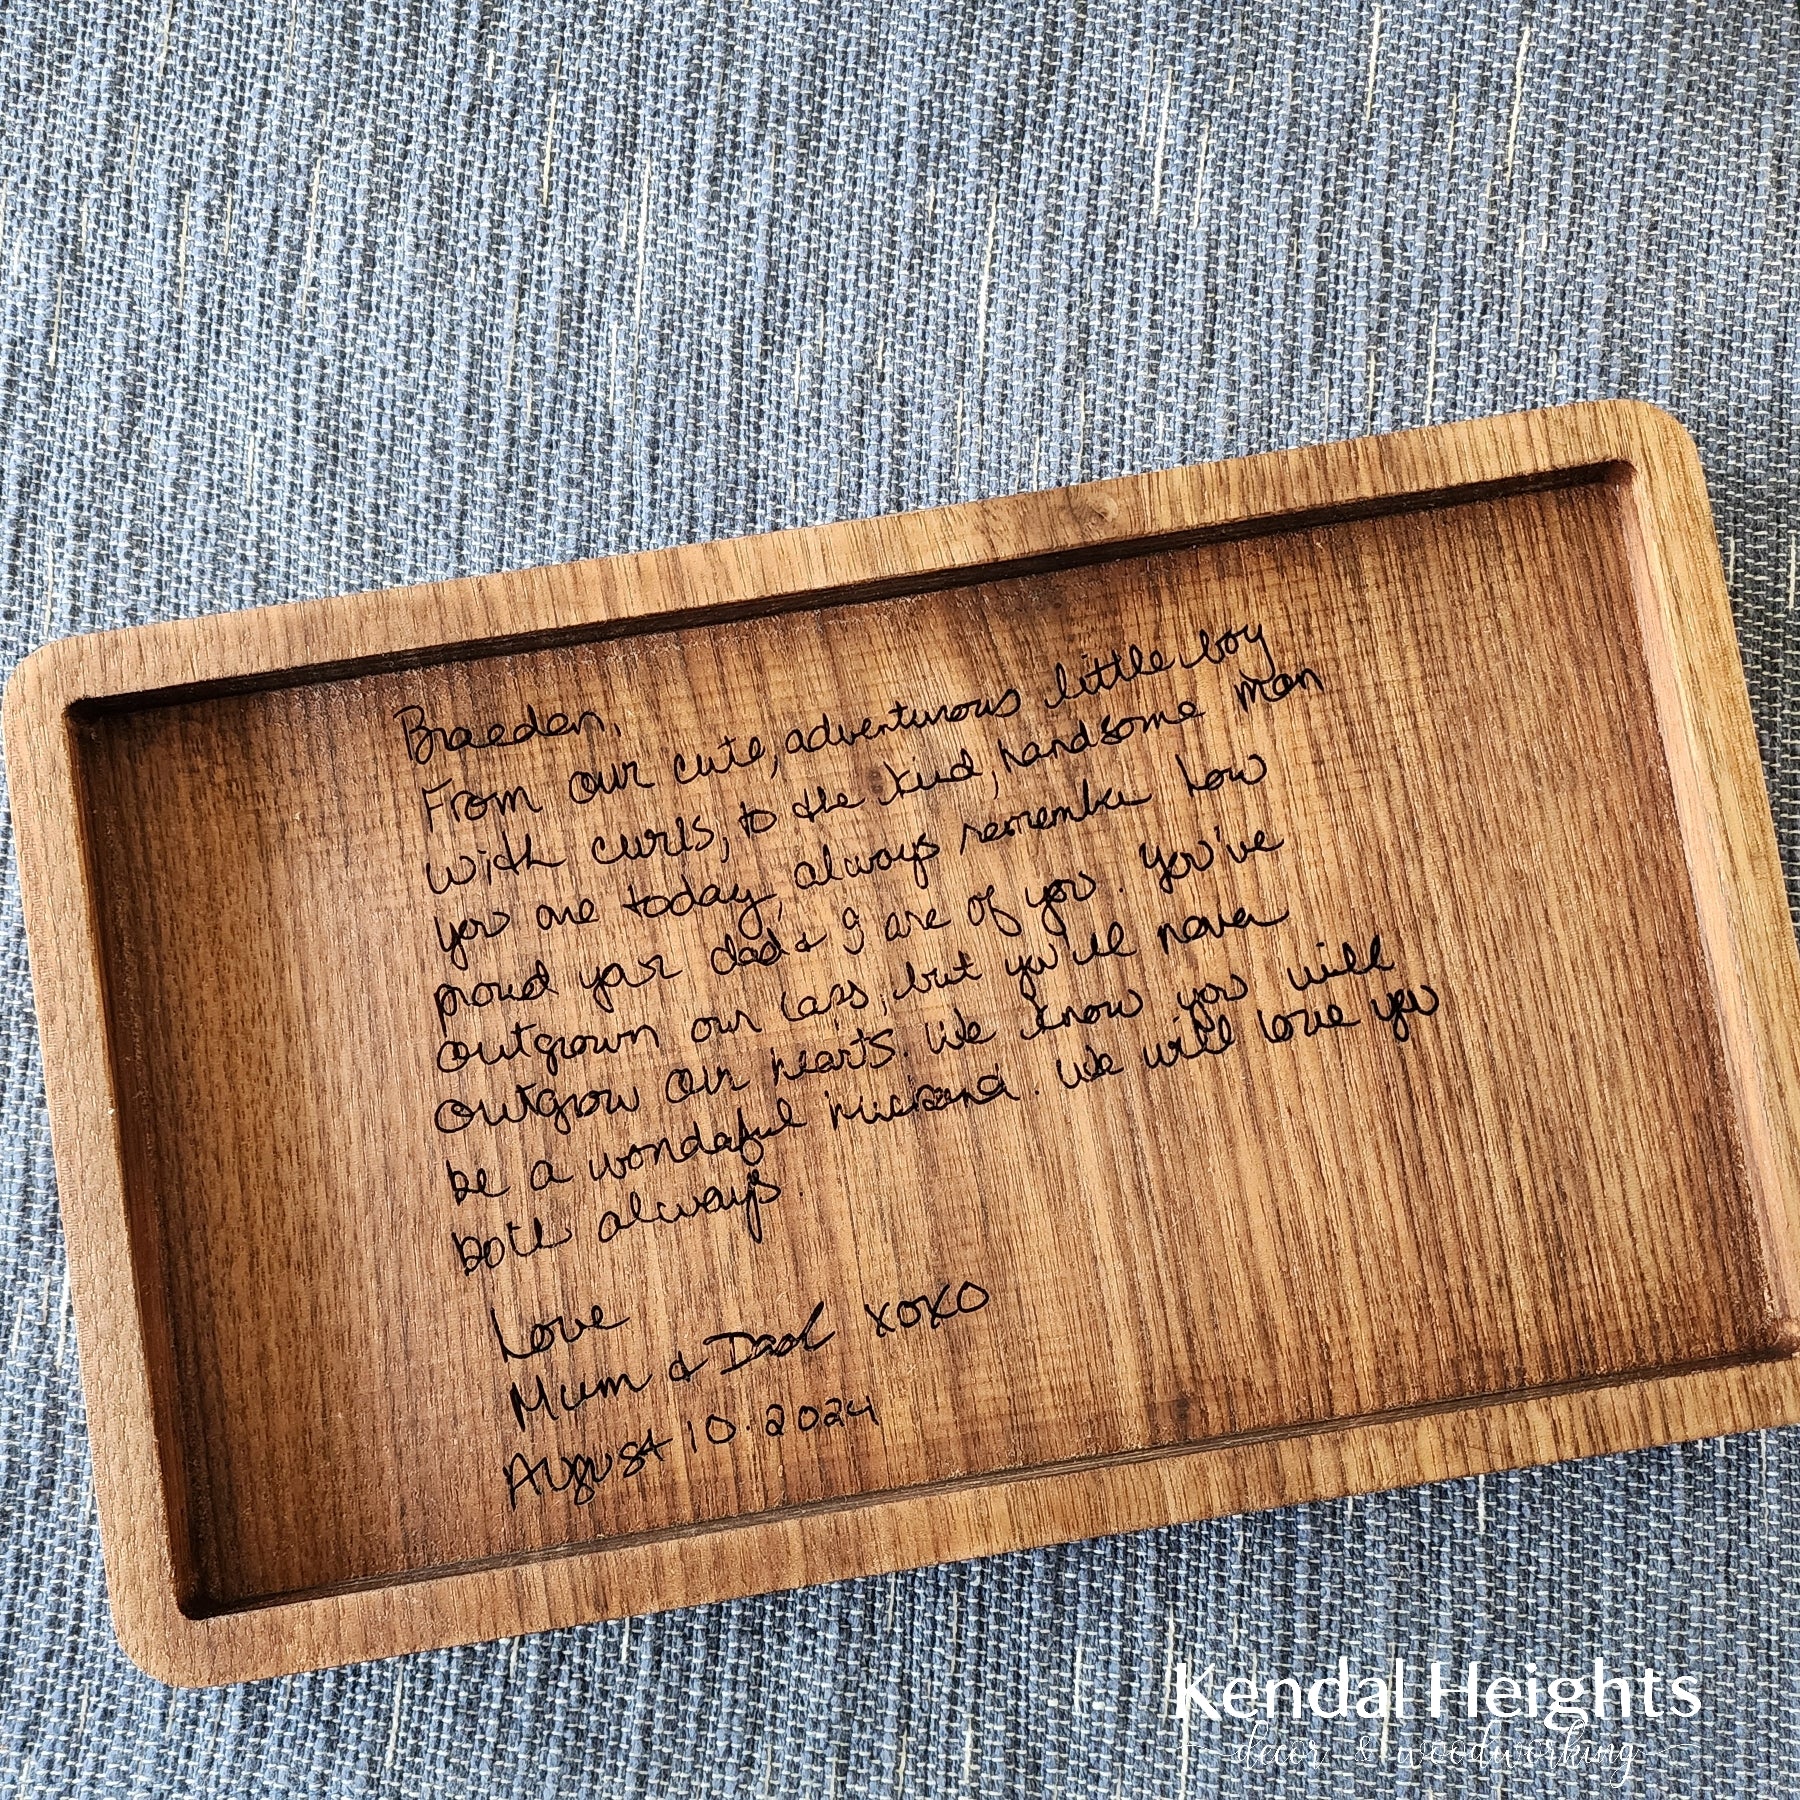 Braeden,
From our cute, adventurous little boy
with curls, to the kind, handsome man
you are today, always remember how
proud your dad & I are of you. You've
outgrown our laps, but you'll never
outgrow our hearts. We know you will
be a wonderful husband. We will love you
both always.
Love
Mum & Dad XOXO
August 10.2024
Kendal Heights
decor & woodworking